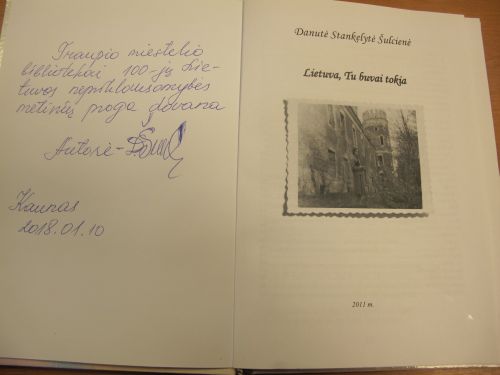 Traupio miestelio
bibliotekai 100-jų Lie-
tuvos nepriklausomybės
metinių proga dovana
Autorė -
Kaunas
2018.01.10
Danutė Stankelytė Šulcienė
Lietuva, Tu buvai tokia
2011 m.